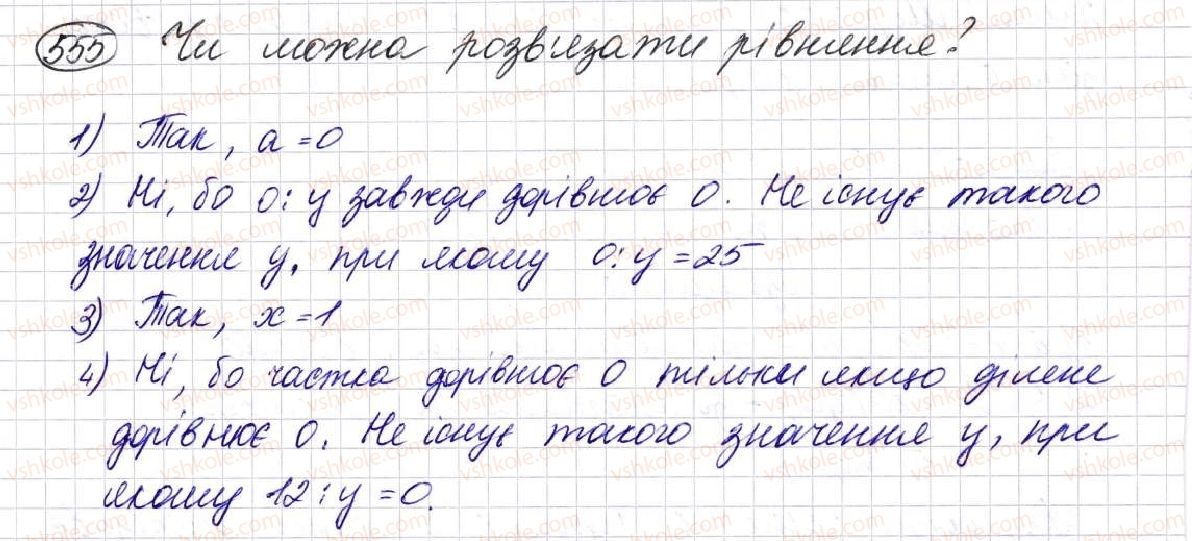 555 Чи можна розв'язати рівняння?
1) Так, a = 0
2) Ні, бо 0 : y завжди дорівнює 0. Не існує такого
значення y, при якому 0 : y = 25
3) Так, x = 1
4) Ні, бо частка дорівнює 0 тільки якщо ділене
дорівнює 0. Не існує такого значення y, при
якому 12 : y = 0.